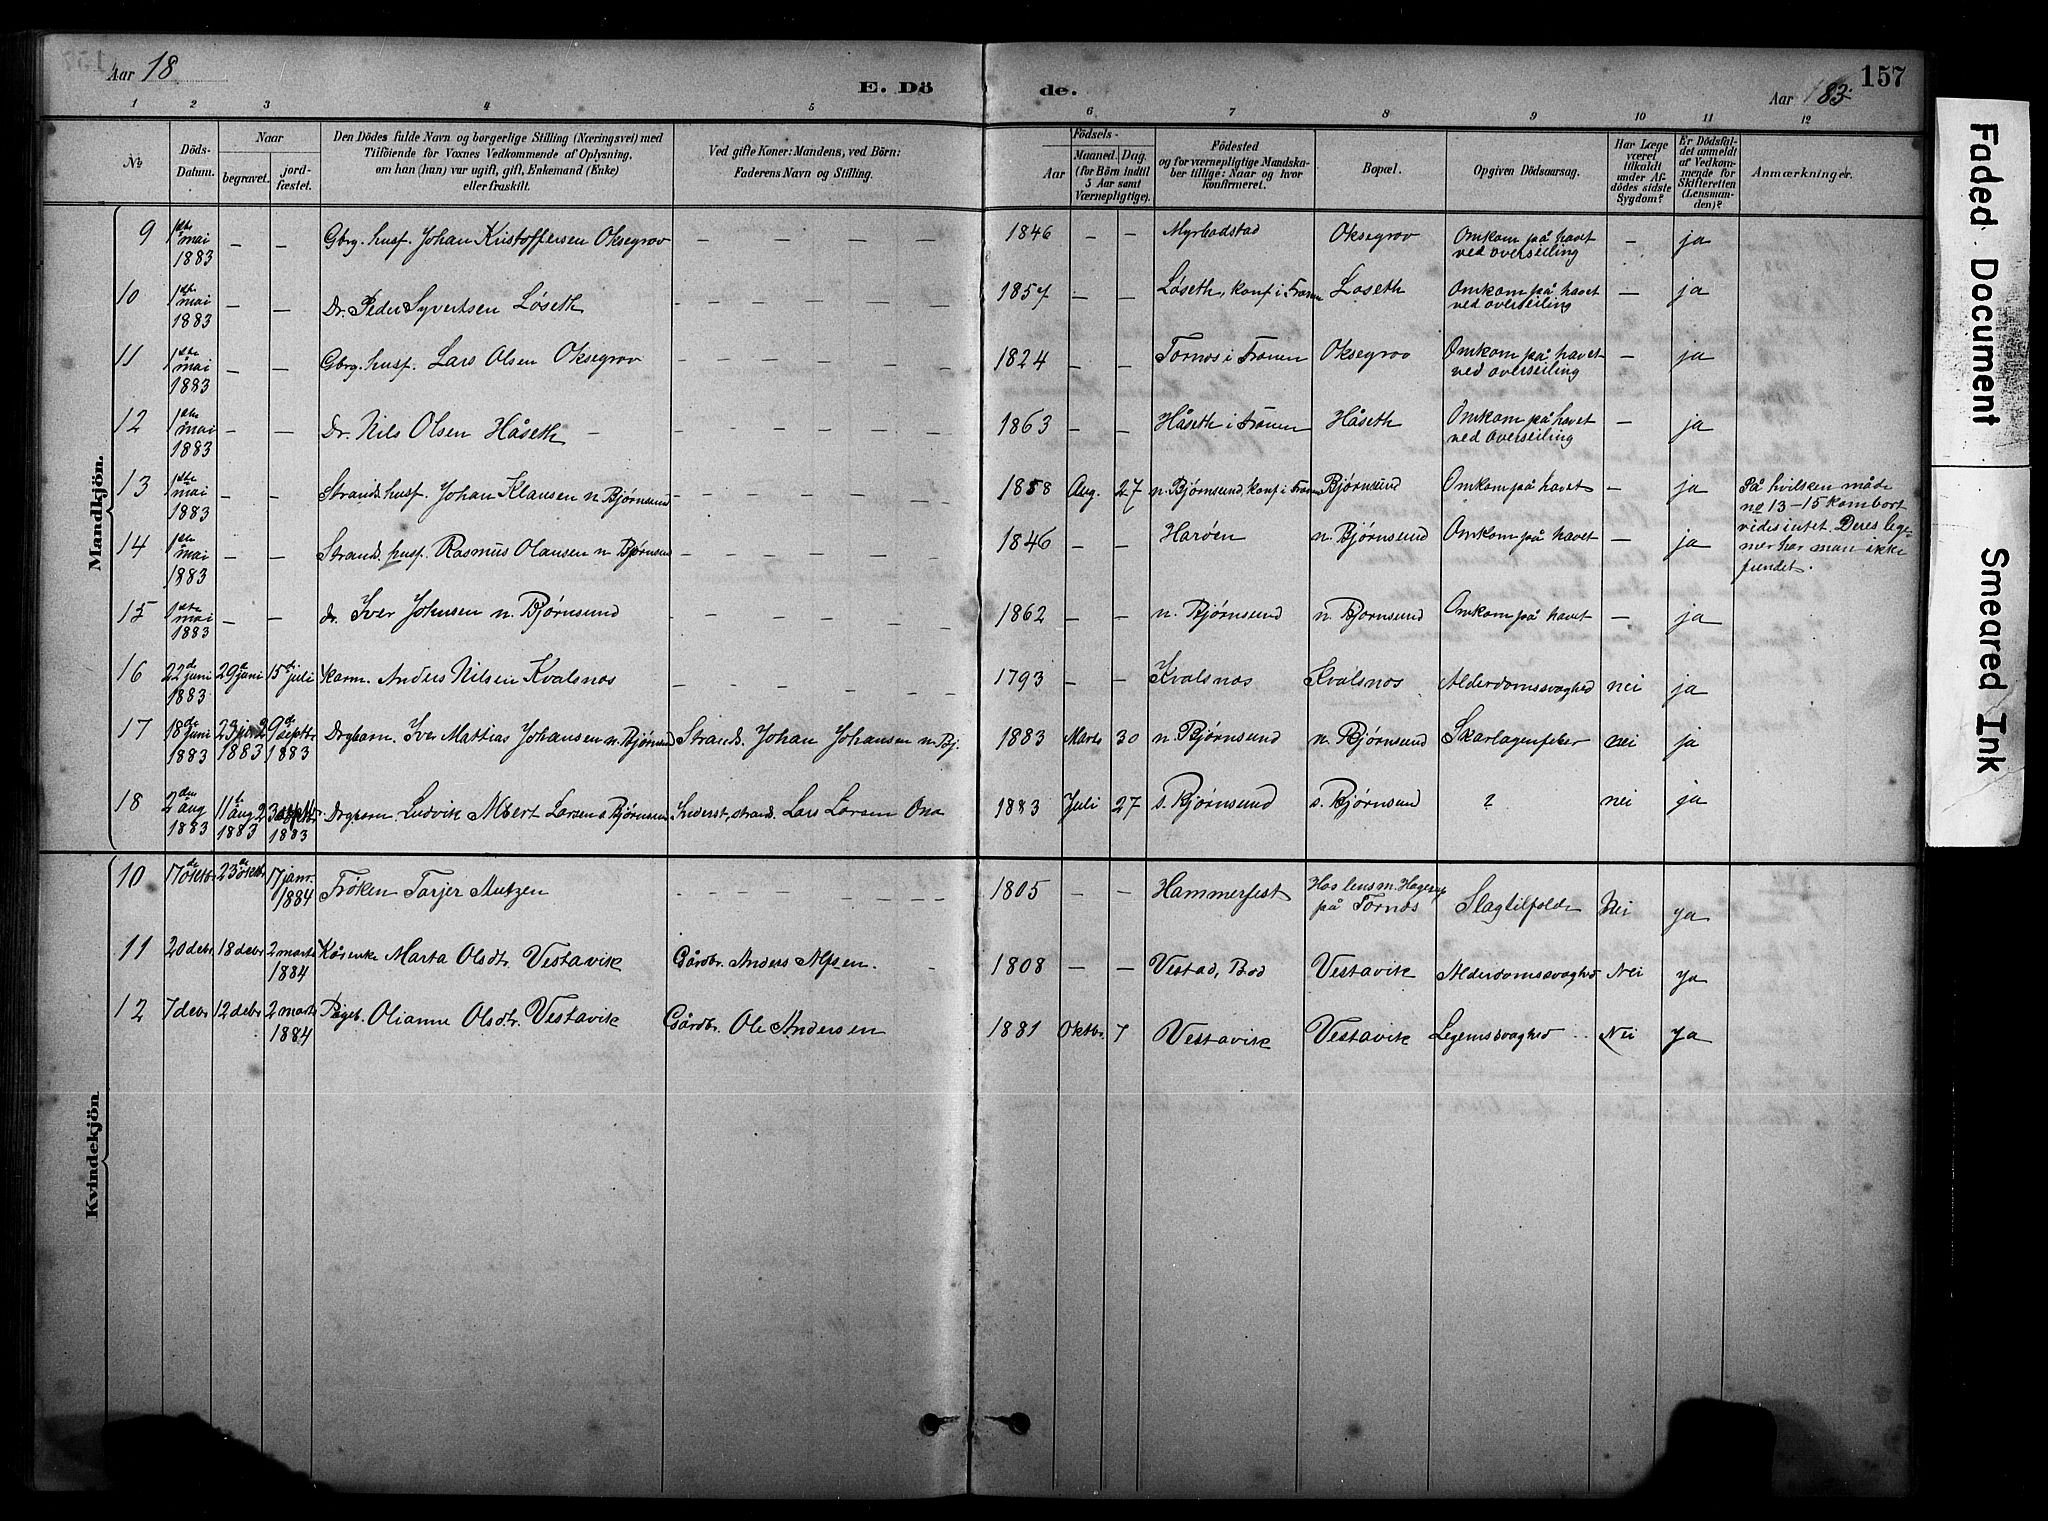 Aar 18
E. Dö
de.
Aar 1883.
157
1 2 3 4 5 6 7 8 9 10 11 12
No
Döds-Datum.
Naar
begravet.
jordfæstet.
Den Dödes fulde Navn og borgerlige Stilling (Næringsvei) med
Tilföiende för Voxnes Vedkommende af Oplysning,
om han (hun) var ugift, gift, Enkemand (Enke)
eller fraskilt.
Ved gifte Koner: Mandens, ved Börn:
Faderens Navn og Stilling.
Födsels-
Aar
Maaned. Dag.
(for Börn indtil
5 Aar samt
Værnepligtige).
Födested
og for værnepligtige Mandskaber tillige: Naar og hvor
konfirmeret.
Bopæl.
Opgiven Dödsaarsag.
Har Læge
været
tilkaldt
under Afdödes sidste
Sygdom?
Er Dödsfaldet anmeldt
af Vedkommende for
Skifteretten
(Lensmanden)?
Anmærkninger.
Mandkjön.
9 1ste mai 1883 – – Gbrg. husf. Johan Kristoffersen Oksegrov – 1846 – – Myrbostad Oksegrov Omkom på havet ved overseiling – ja
10 1ste mai 1883 – – Dr. Peder Syvertsen Løseth – 1857 – – Løseth, konf i Frænen Løseth Omkom på havet ved overseiling – ja
11 1ste mai 1883 – – Gbrg. husf. Lars Olsen Oksegrov – 1824 – – Tornes i Frænen Oksegrov Omkom på havet ved overseiling – ja
12 1ste mai 1883 – – Dr. Nils Olsen Håseth – 1863 – – Håseth i Frænen Håseth Omkom på havet ved overseiling – ja
13 1ste mai 1883 – – Strands. husf. Johan Klausen n. Bjørnsund – 1858 Aug. 27 n. Bjørnsund, konf i Frænen Bjørnsund Omkom på havet – ja På hvilken måde
no 13–15 kom bort
vides intet. Deres legemer har man ikke
fundet.
14 1ste mai 1883 – – Strands. husf. Rasmus Olausen n. Bjørnsund – 1846 – – Harøen n. Bjørnsund Omkom på havet – ja
15 1ste mai 1883 – – dr. Iver Johnsen n. Bjørnsund – 1862 – – n. Bjørnsund n. Bjørnsund Omkom på havet – ja
16 22de juni 1883 29de juni 15de juli Karm. Anders Nilsen Kvalsnes – 1793 – – Kvalsnes Kvalsnes Alderdomssvaghed nei ja
17 18de juni 1883 23 juni 1883 9de septbr 1883 Drgbarn. Iver Mathias Johansen n. Bjørnsund Strands. Johan Johansen n. Bj. 1883 Marts 30 n. Bjørnsund n. Bjørnsund Skarlagenfeber nei ja
18 2den aug 1883 11te aug 1883 23 septbr 1883 Drgbarn. Ludvik Albert Larsen s Bjørnsund Inderst, strands. Lars Larsen Ona 1883 Juli 27 s. Bjørnsund s. Bjørnsund ? nei ja
Kvindekjön.
10 17de oktbr 23de oktbr 17 janr. 1884 Frøken Tarjer Mutzen – 1805 – – Hammerfest Hos lensm. Hagerup på Tornes Slagtilfælde Nei ja
11 20 debr 18 debr 2 marts 1884 Kårenke Marta Olsdtr. Vestavik Gårdbr. Anders Alfsen. 1808 – – Vestad, Bod Vestavik Alderdomssvaghed Nei ja
12 7 debr 12 debr 2 marts 1884 Pigeb. Olianne Olsdtr. Vestavik Gårdbr. Ole Andersen 1881 Oktbr. 7 Vestavik Vestavik Legemssvaghed Nei ja
Faded Document
Smeared Ink